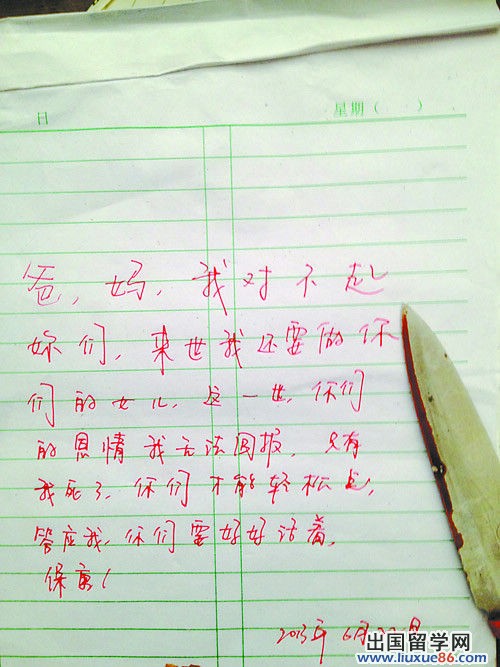 日 星期( )
爸,妈,我对不起
你们,来世我还要做你
们的女儿,这一世,你们
的恩情我无法回报,只有
我死了,你们才能轻松点,
答应我,你们要好好活着,
保重!
2013年6月
出国留学网
www.liuxue86.com